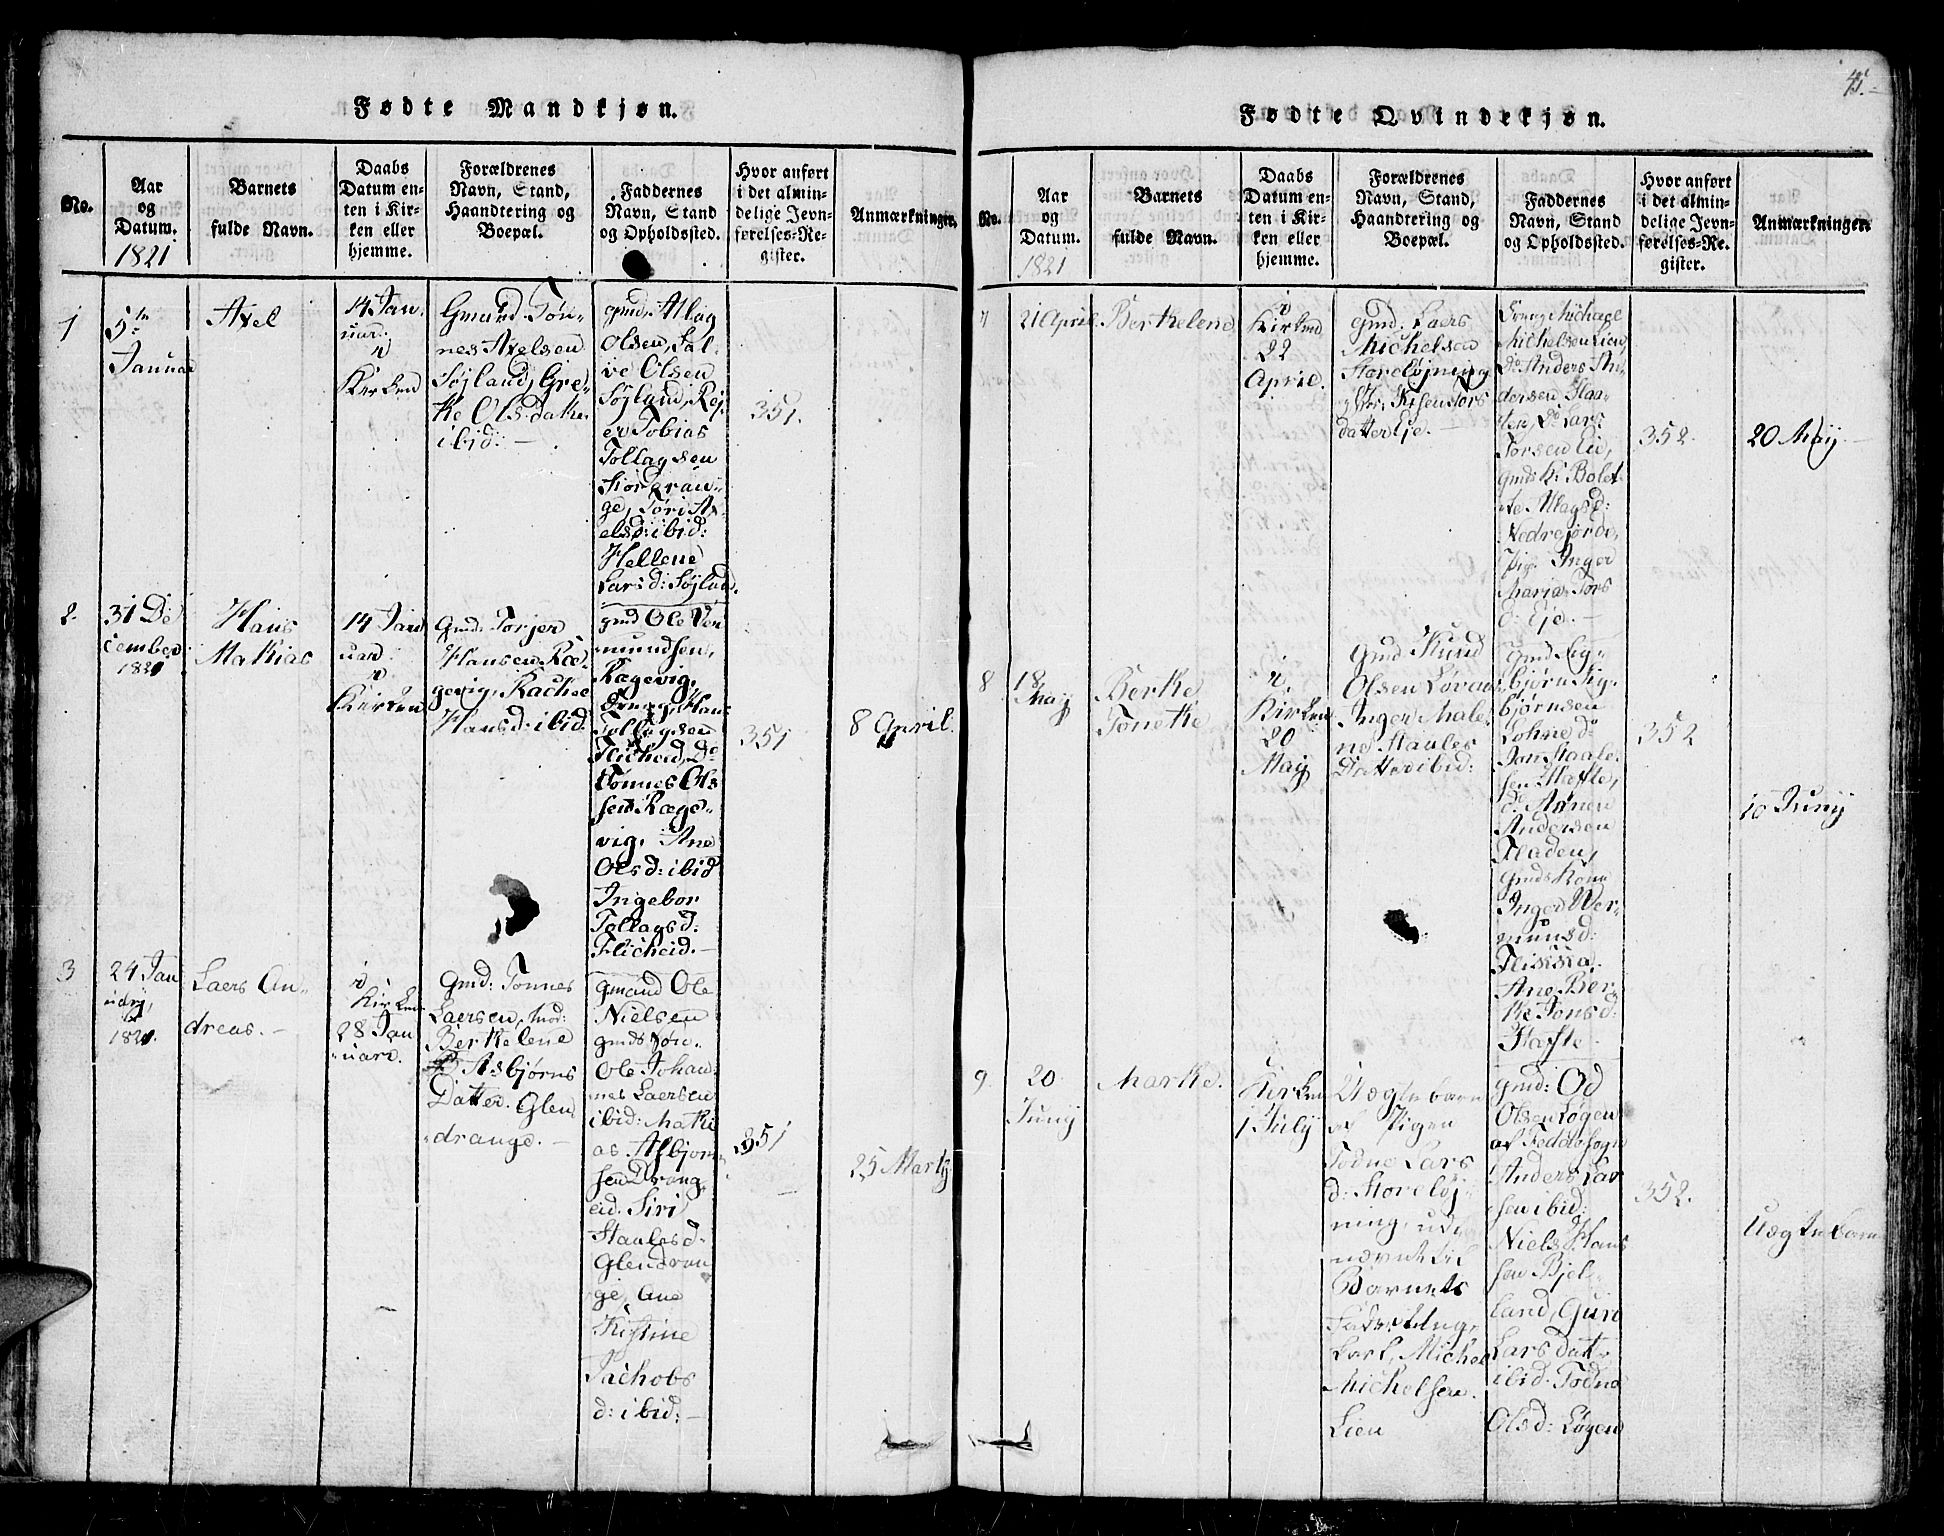 45.
Fødte Mandkjøn.
No.
Aar
og
Datum.
1821
Barnets
fulde Navn.
Daabs
Datum en-
ten i Kir-
ken eller
hjemme.
Forældrenes
Navn, Stand,
Haandtering og
Boepæl.
Faddernes
Navn, Stand
og Opholdssted.
Hvor anført
i det almin-
delige Jevn-
førelses-Re-
gister.
Anmærkninger.
1
5te
Januar
Axel
14 Jan
uar:
i
Kirken
Gmand Tøn-
nes Axelsen
Søjland, Gre-
the Olsdatter
ibid: –
gmd, Atlag
Olsen, Sal-
ve Olsen
Søjland, Rej-
er Tobias
Tollagsen
Fiordran-
ge, Tøri Ax-
elsd: ibid:
Hellene
Larsd: Søjland.
351.
2.
31 De
cember
1820
Hans
Mathias
14 Jan
uar:
i
Kirken
Gmd. Torjer
Hansen Ræ-
gevig, Rachel
Hansd: ibid.
gmd Ole Ver
mundsen,
Rægevig,
Dreng. Hans
Tollagsen
Flicheid, Do
Tønnes Ol-
sen Ræge-
vig, Ane
Olsd: ibid
Ingebor
Tollagsd:
Flicheid. –
351
8 April.
3
24 Jan
uarj,
1821.
Laers An-
dreas. –
i
Kirken
28 Jan
uari.
Gmd: Tønnes
Laersen, mod:
Berthelene
Asbjørns
Datter. Glen
drange. –
gmand Ole
Nielsen
gmds Søn
Ole Johan-
nes Laersen
ibid: Mathi
as Asbjørn
sen Drang
eid. Siri
Staalesd:
Glendran
ge, Ane
Kistine
Jachobs
d: ibid: –
351
25 Martj
Fødte Qvindekjøn.
No.
Aar
og
Datum.
1821
Barnets
fulde Navn.
Daabs
Datum en-
ten i Kir-
ken eller
hjemme.
Forældrenes
Navn, Stand,
Haandtering og
Boepæl.
Faddernes
Navn, Stand
og Opholdssted.
Hvor anført
i det almin-
delige Jevn-
førelses-Re-
gister.
Anmærkninger
7
21 April
Berthelene
i
Kirken
22
April.
gmd. Laers
Michelsen
Storeløjning
Tors
datter Eje. –
Dreng Michael
Michelsen Lien,
Do Anders An-
dersen Haa-
Do Lars
Torsen Eie,
gmds K: Bolet-
te Atlagsd:
Nedrejorde,
Pig: Inger
Maria Tors
d: Eje. –
352.
20 Maij –
8
18
Maij
Berthe
Tonette
i
Kirken
20
Maij
Gmd. Knud
Olsen Løvaas
Inger Male-
ne Staales
Datter ibid:
gmd Sig-
bjørn Sig-
bjørnsen
Lohne do
Jon Staale-
sen Hafte,
d. Asner
Andersen
Fladen,
gmds Kone
Inger Wer-
munsd:
Ane Ber-
the Jonsd:
Hafte.
352
10 Junij
9.
20
Junij
Marthe.
Kirken
1 Julij
Uægte barn
af Pigen
Todne Lars
d: Storeløj-
ning, ud-
nævnte til
Barnets
Fader Ung-
karl, Michel
Michelsen
Lien
gmd: Od
Olsen Løgen
af Feddesogn
Anders Lar
sen ibid:
Niels Hans
sen Bjel-
land, Guro
Lars dat-
ibid. Todne
Olsd: Løgen
352.
Uægte barn